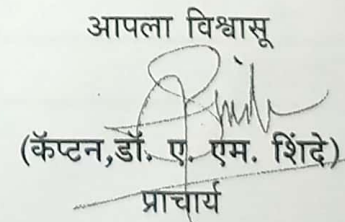 आपला विश्वासू
(कॅप्टन,डॉ. ए. एम. शिंदे)
प्राचार्य